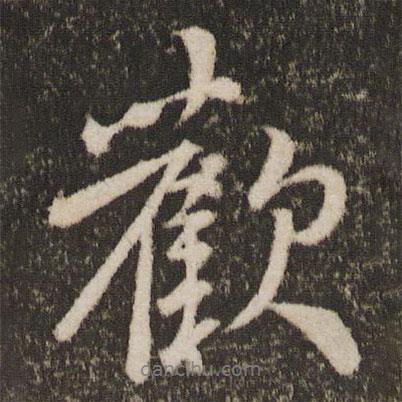 歡
dancihu.com